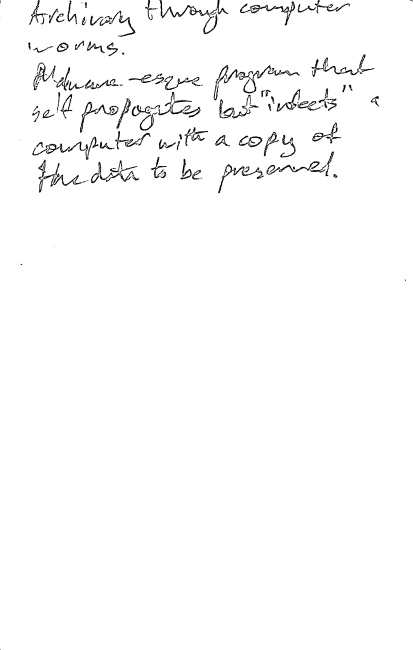 Archivary through computer
worms.
Malware-esque program that
self propogates but "infects" a
computer with a copy of
the data to be preserved.